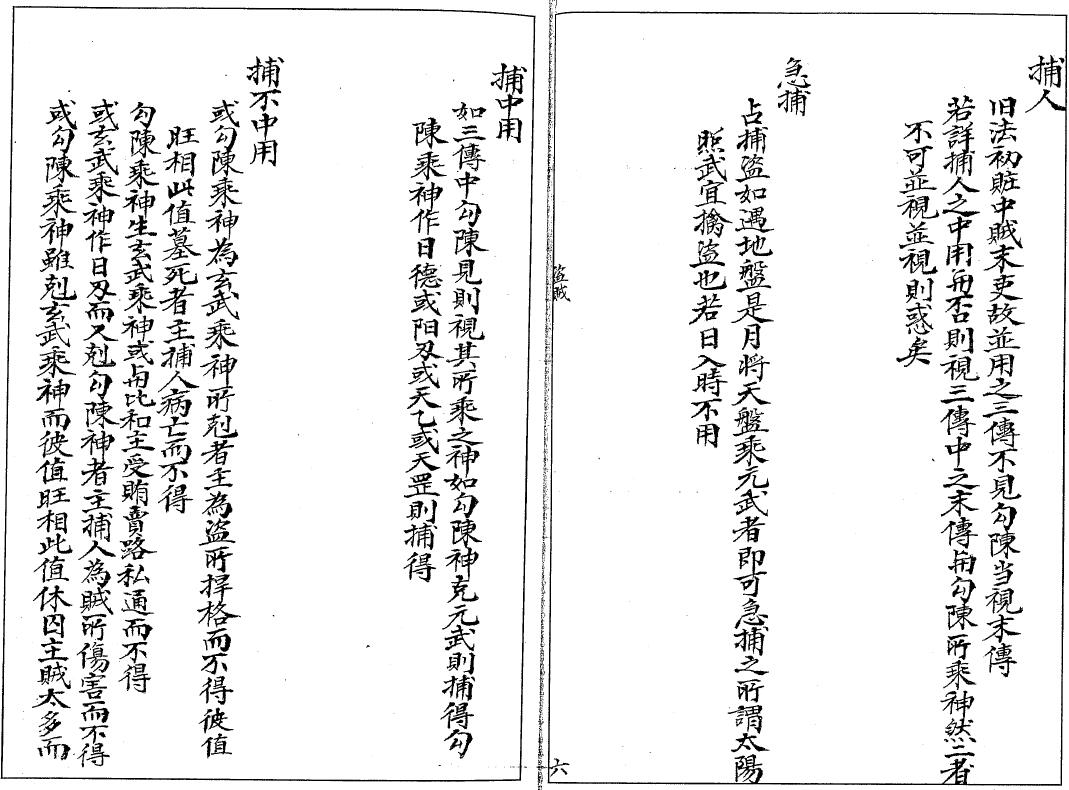 捕人
旧法初賍中賊末吏故並用之三傳不見勾陳当視末傳
若詳捕人之中用與否則視三傳中之末傳與勾陳所乘神然二者
不可並視並視則惑矣
急捕
占捕盜如遇地盤是月将天盤乘元武者即可急捕之所謂太陽
照武宜擒盜也若日入時不用
盜賊
六
捕中用
如三傳中勾陳見則視其所乘之神如勾陳神克元武則捕得勾
陳乘神作日德或阳刄或天乙或天罡則捕得
捕不中用
或勾陳乘神為玄武乘神所剋者主為盜所捍格而不得彼值
旺相此值墓死者主捕人病亡而不得
勾陳乘神生玄武乘神或與比和主受賄賣路私通而不得
或玄武乘神作日刄而又剋勾陳神者主捕人為賊所傷害而不得
或勾陳乘神雖剋玄武乘神而彼值旺相此值休囚主賊太多而